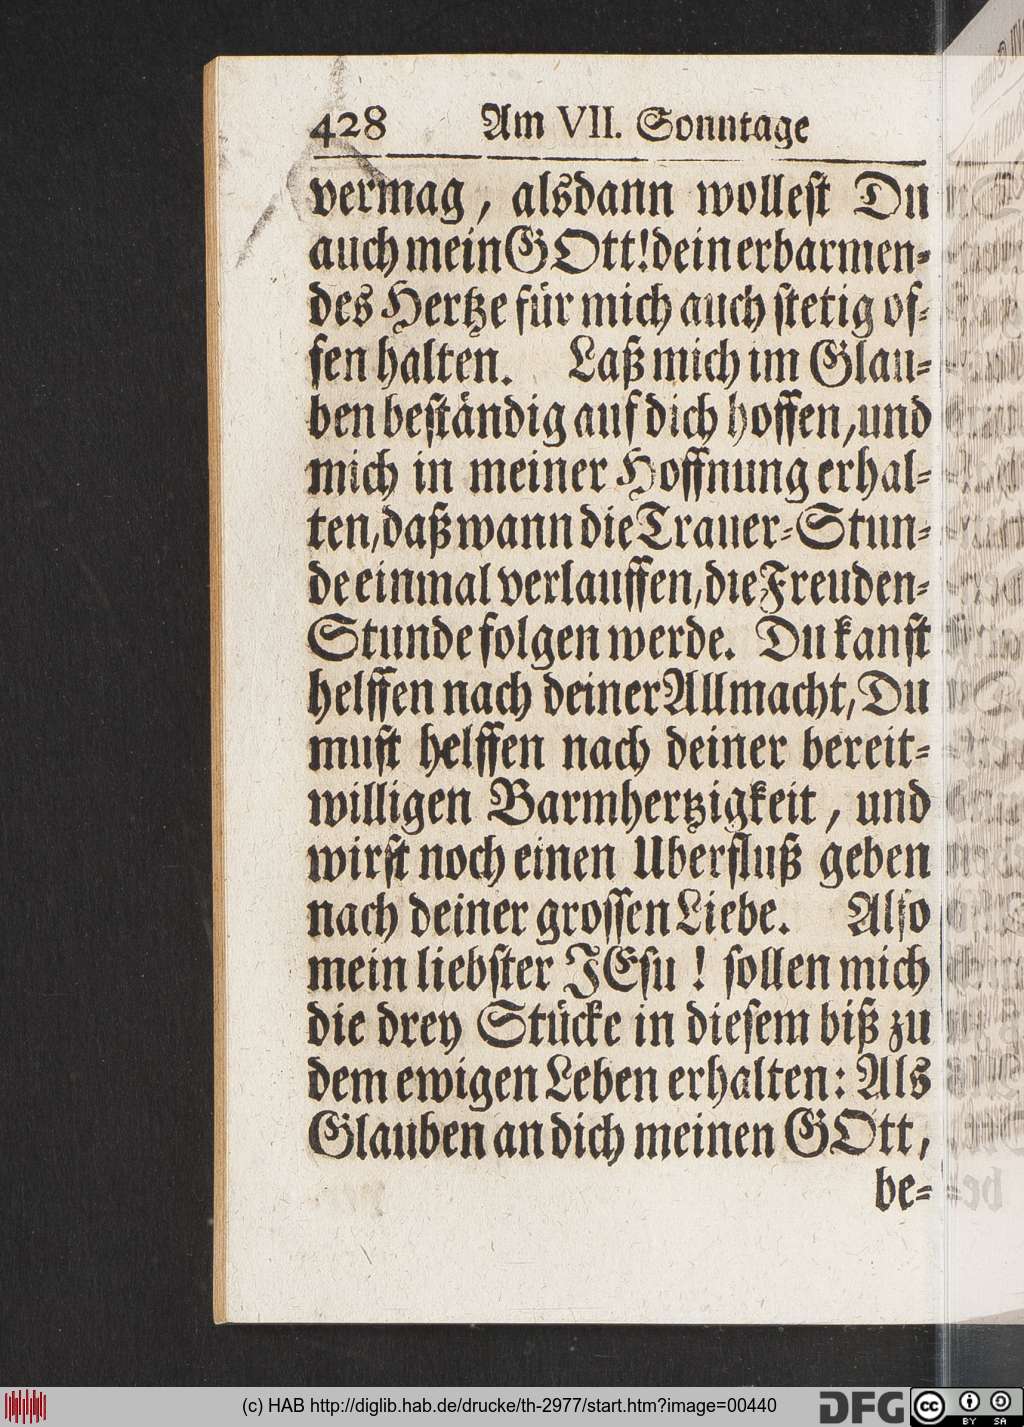 428 Am VII. Sonntage
vermag, alsdann wollest Du
auch mein GOtt! dein erbarmen-
des Hertze für mich auch stetig of-
fen halten. Laß mich im Glau-
ben beständig auf dich hoffen, und
mich in meiner Hoffnung erhal-
ten, daß wann die Trauer-Stun-
de einmal verlauffen, die Freuden-
Stunde folgen werde. Du kanst
helffen nach deiner Allmacht, Du
must helffen nach deiner bereit-
willigen Barmhertzigkeit, und
wirst noch einen Uberfluß geben
nach deiner grossen Liebe. Also
mein liebster JEsu! sollen mich
die drey Stücke in diesem biß zu
dem ewigen Leben erhalten: Als
Glauben an dich meinen GOtt,
be-
(c) HAB http://diglib.hab.de/drucke/th-2977/start.htm?image=00440
DFG
cc BY SA